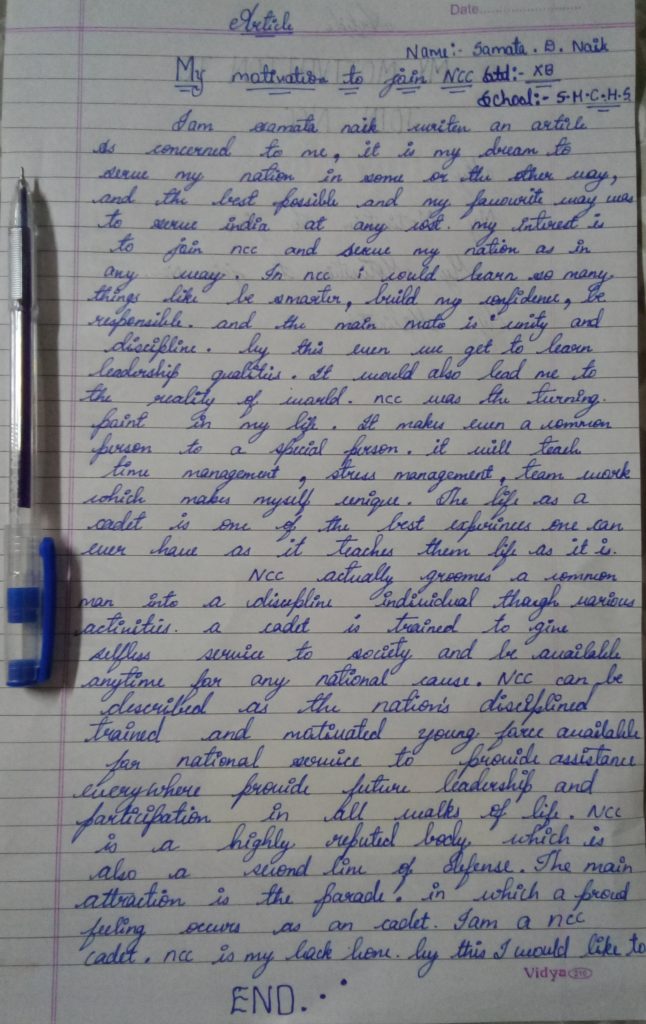 Date
Article
Name:- Samata . B. Naik
My motivation to join NCC Std:- XB
School:- S.M.C.H.S
I am samata naik writen an article
As concerned to me, it is my dream to
serve my nation in some or the other way,
and the best possible and my favourite way was
to serve india at any cost. my interest is
to join ncc and serve my nation as in
any way. In ncc i could learn so many
things like be smarter, build my confidence, be
responsible. and the main moto is 'unity and
discipline. by this even we get to learn
leadership qualitis. It would also lead me to
the reality of world. ncc was the turning.
point in my life. It makes even a common
person to a special person. it will teach
time management, stress management, team work
which makes myself unique. The life as a
cadet is one of the best experinces one can
ever have as it teaches them life as it is.
NCC actually groomes a common
man into a discipline individual though various
activitis. a cadet is trained to give
selfless service to society and be available
anytime for any national cause. NCC can be
described as the nation's disciplined
trained and motivated young force available
for national service to provide assistance
everywhere provide future leadership and
participation in all walks of life. NCC
is a highly reputed body which is
also a second line of defense. The main
attraction is the parade. in which a proud
feeling occurs as an cadet. I am a ncc
cadet. ncc is my back bone. by this I would like to
Vidya
END...